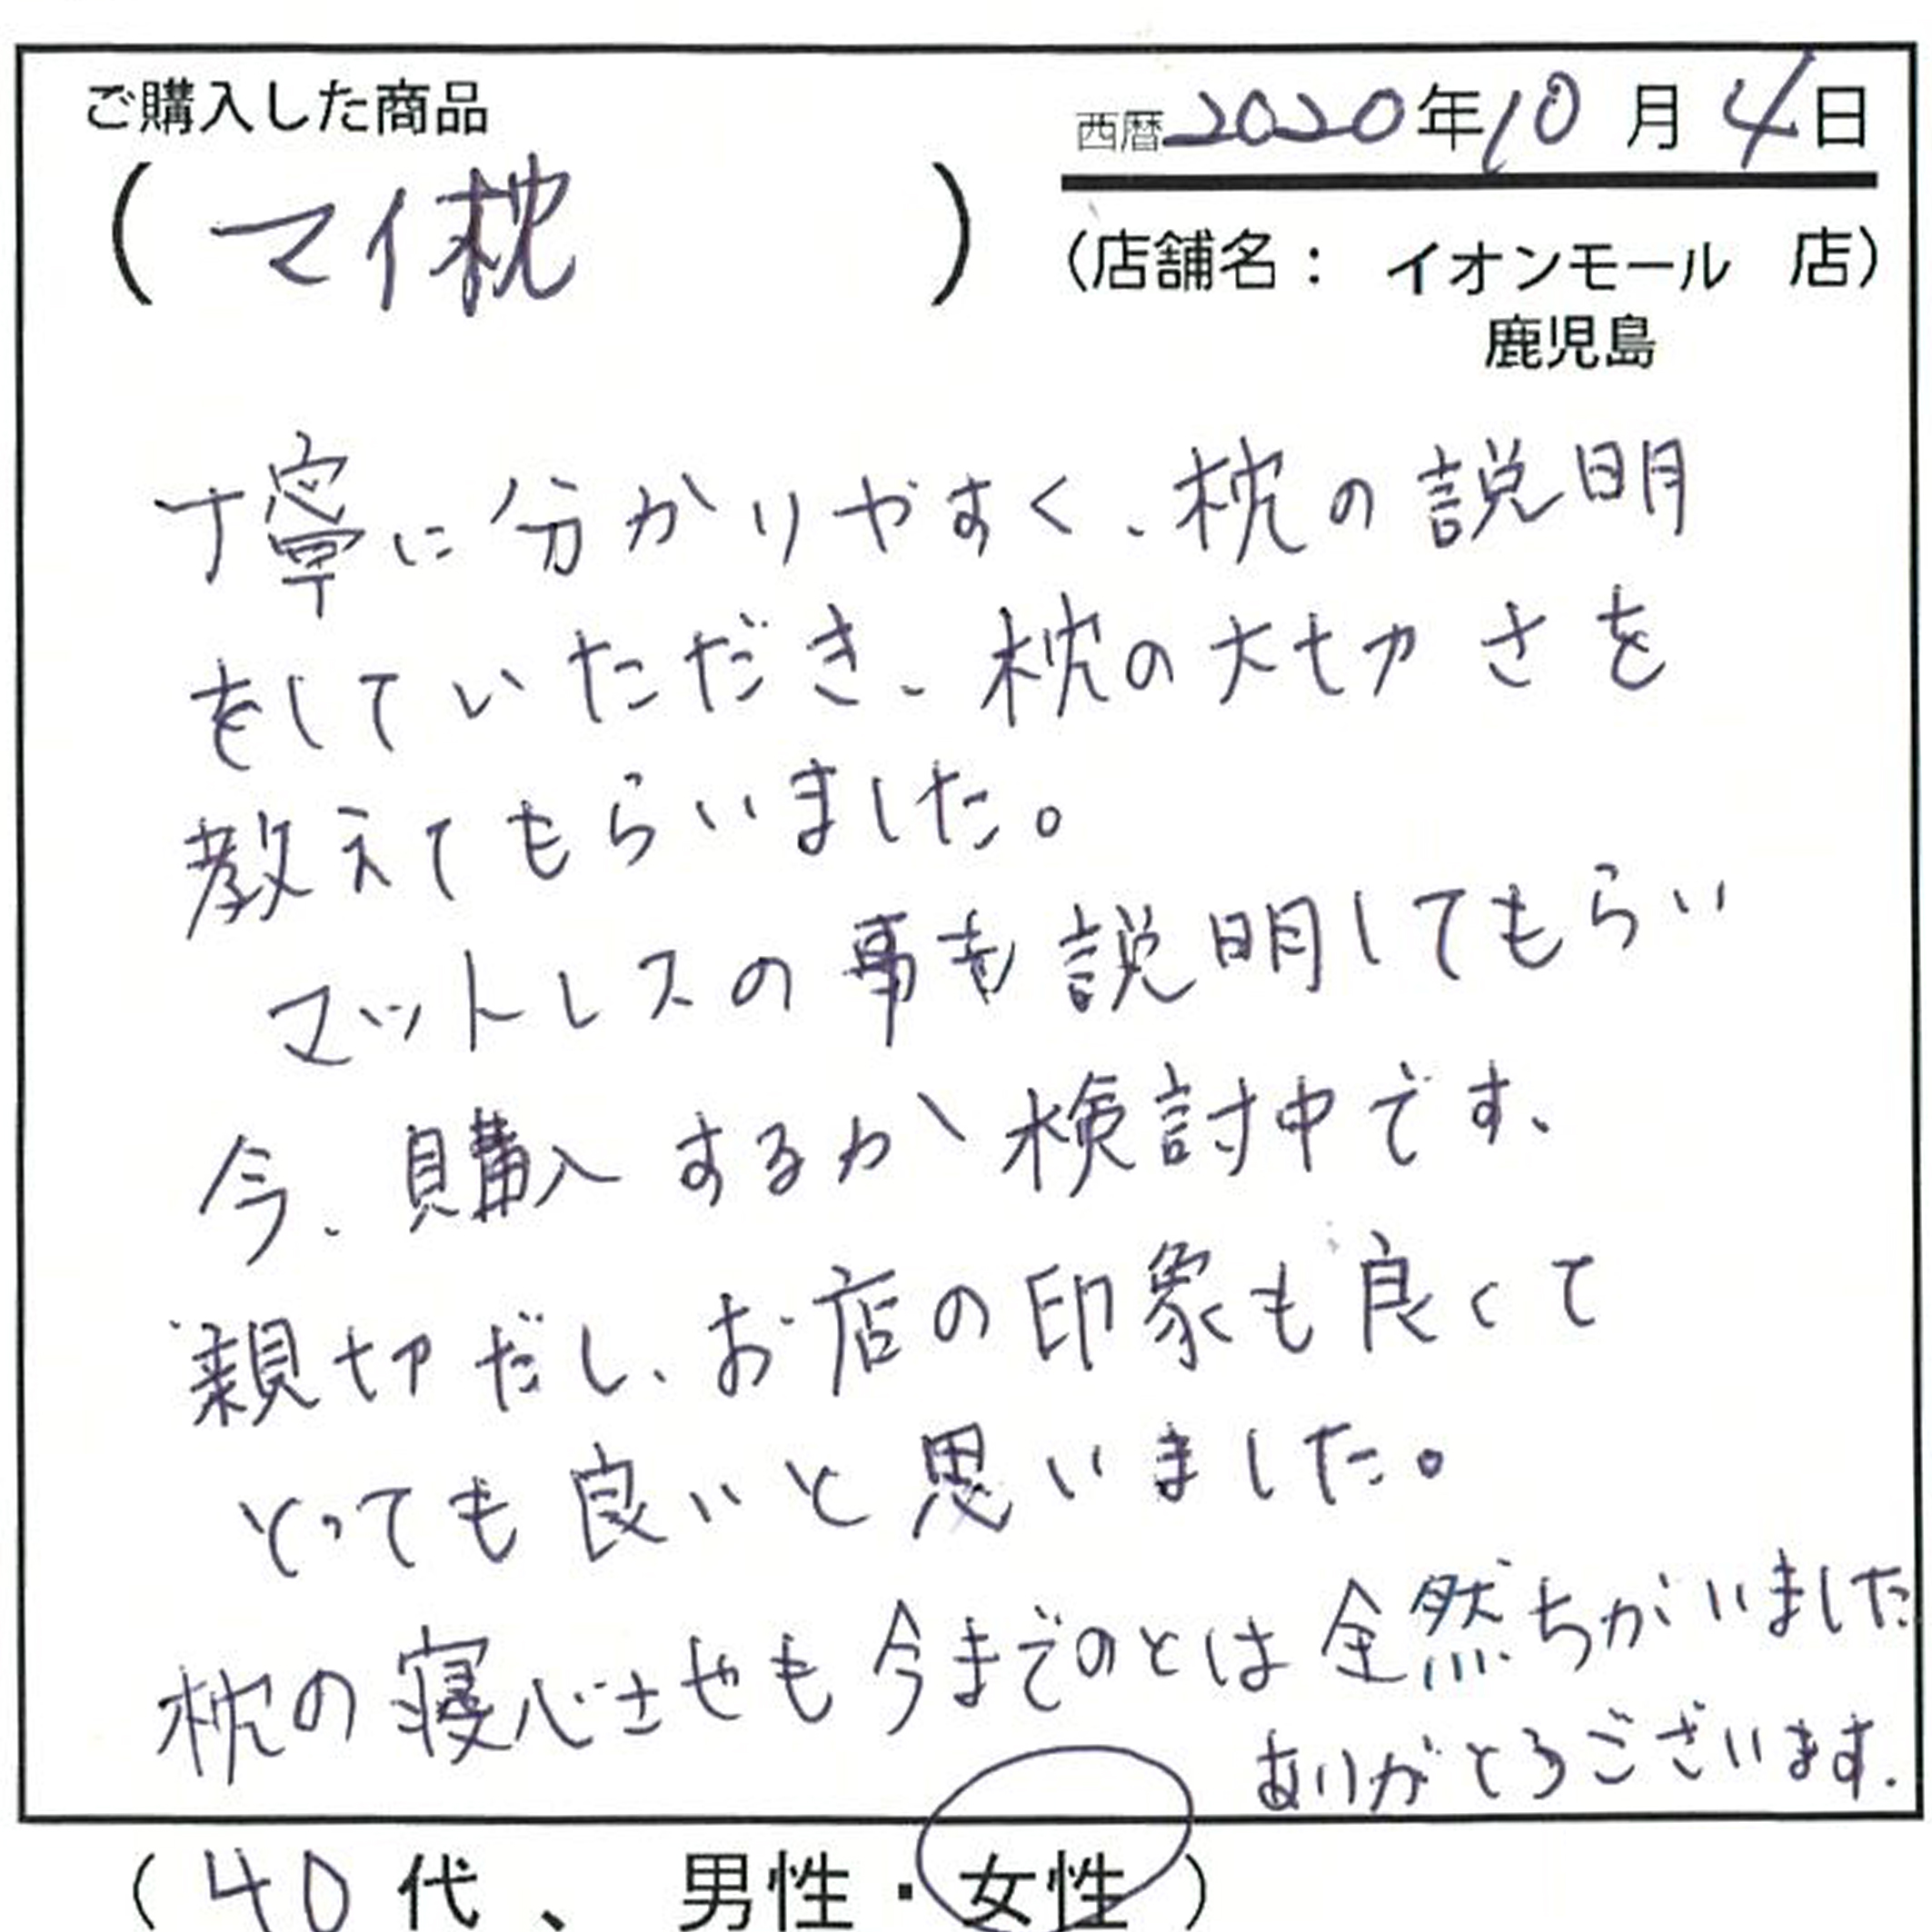 ご購入した商品
西暦2020年10月4日
(マイ枕)
(店舗名: イオンモール 店)
鹿児島
丁寧に分かりやすく、枕の説明
をしていただき、枕の大切さを
教えてもらいました。
マットレスの事も説明してもらい
今、購入するか検討中です、
親切だし、お店の印象も良くて
とっても良いと思いました。
枕の寝心させも今までのとは全然ちがいました
ありがとうございます.
(40代、男性・女性)